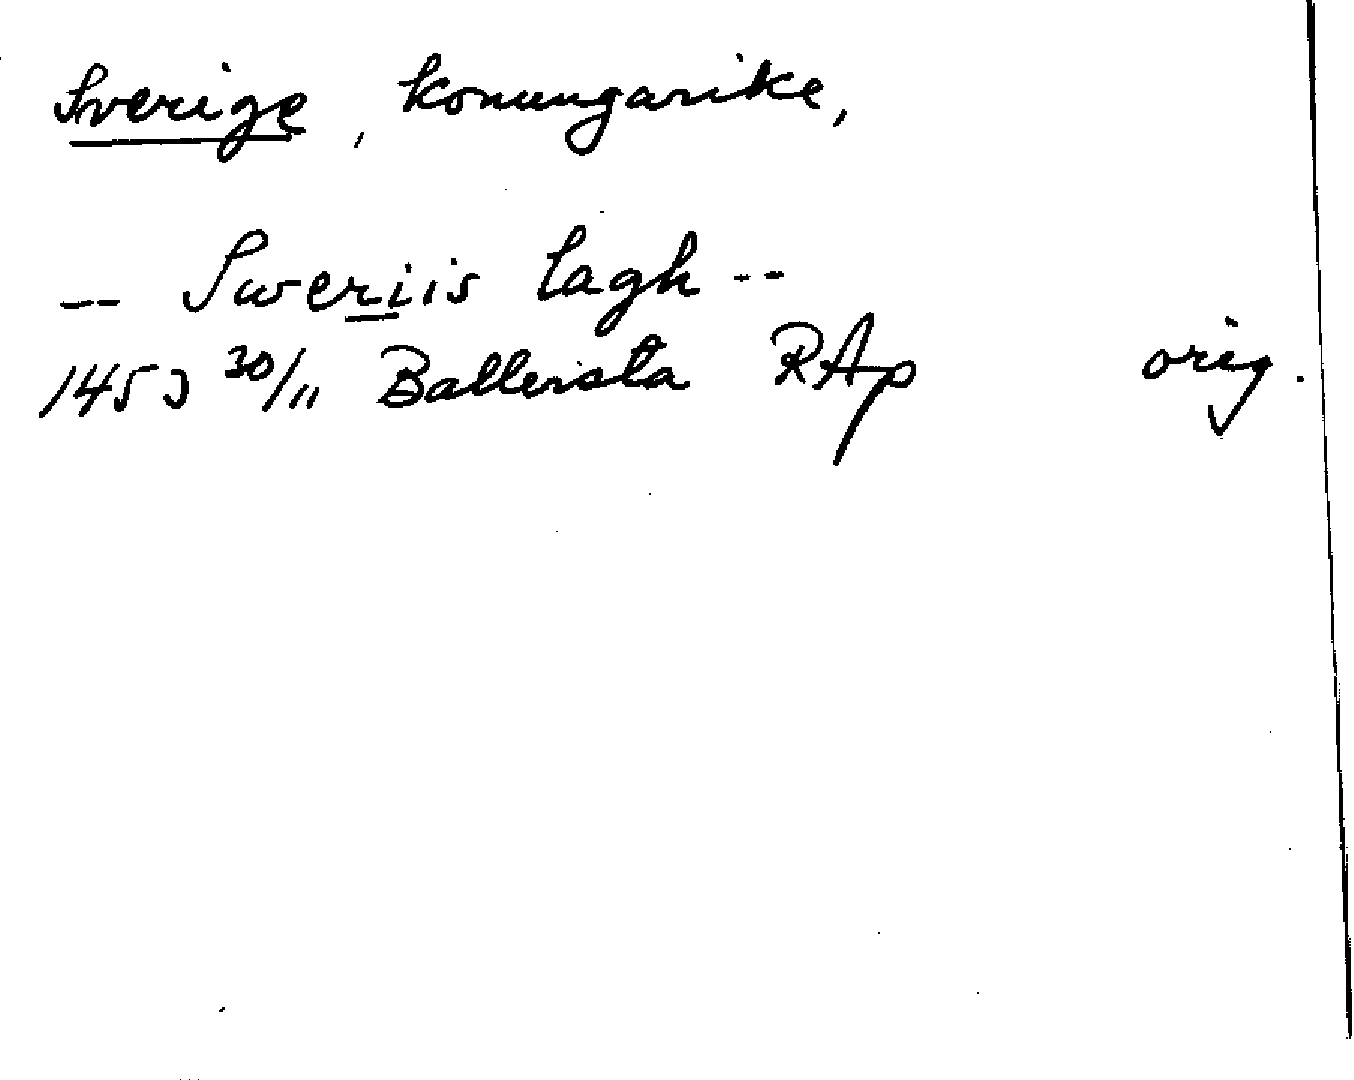 Sverige, konungarike,
-- Sweriis lagh --
1453 30/11 Ballersta RAp orig.